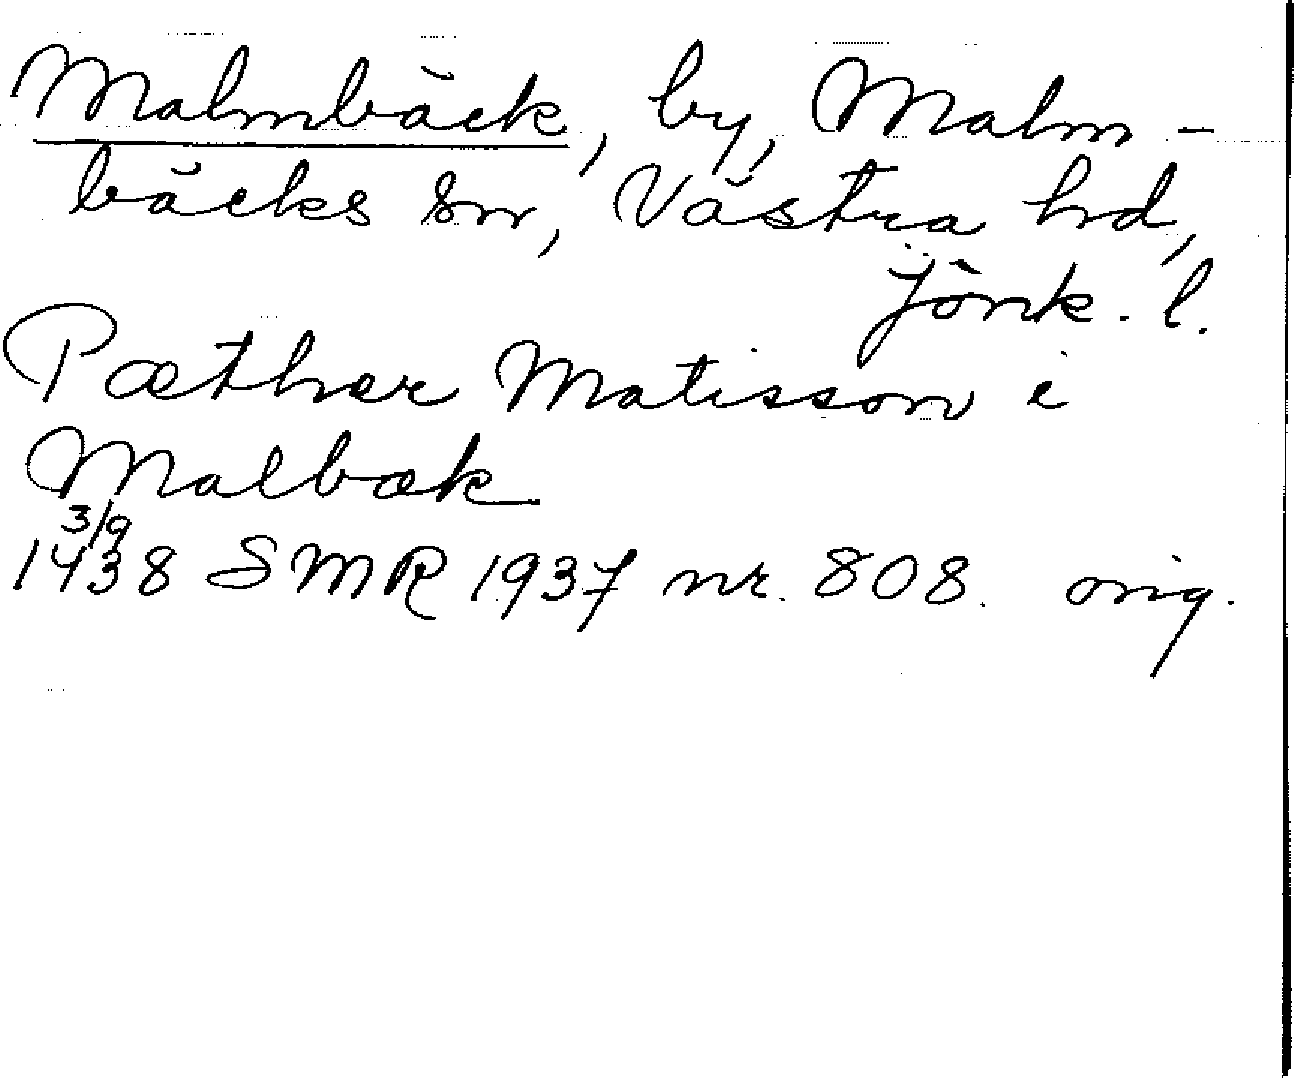 Malmbäck, by, Malm-
bäcks sn, Västra hd,
Jönk. l.
Pæther Matisson i
Malbæk
3/9
1438 SMR 1937 nr. 808. orig.